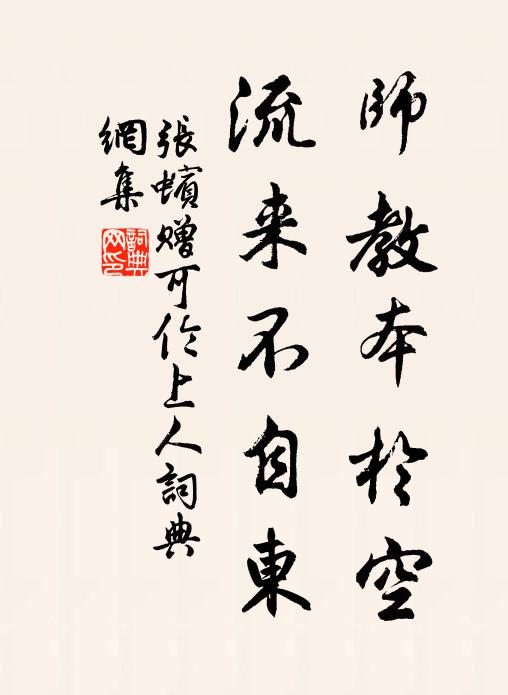 師教本於空
流来不自東
張蠙贈可倫上人詞典
網集
詞典網印